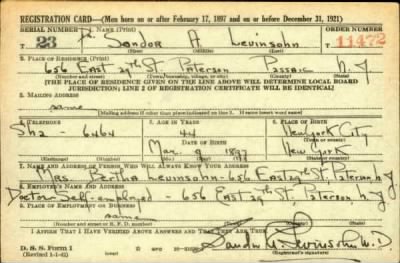 REGISTRATION CARD—(Men born on or after February 17, 1897 and on or before December 31, 1921)
SERIAL NUMBER 1. NAME (Print) ORDER NUMBER
T 23 Sandor A Levinsohn 11472
2. PLACE OF RESIDENCE (Print)
656 East 29th St. Paterson Passaic N.J
(Number and street) (Town, township, village, or city) (County) (State)
[THE PLACE OF RESIDENCE GIVEN ON THE LINE ABOVE WILL DETERMINE LOCAL BOARD
JURISDICTION; LINE 2 OF REGISTRATION CERTIFICATE WILL BE IDENTICAL]
3. MAILING ADDRESS
same
[Mailing address if other than place indicated on line 2. If same insert word same]
4. TELEPHONE 5. AGE IN YEARS 6. PLACE OF BIRTH
44 New York City
She - 6464 DATE OF BIRTH (Town or county)
Mar. 9 1897 New York
(Exchange) (Number) (Mo.) (Day) (Yr.) (State or country)
7. NAME AND ADDRESS OF PERSON WHO WILL ALWAYS KNOW YOUR ADDRESS
Mrs. Bertha Levinsohn - 656 East 29th St, Paterson N.J
8. EMPLOYER'S NAME AND ADDRESS
Doctor Self-employed - 656 East 29th St, Paterson, N.J
9. PLACE OF EMPLOYMENT OR BUSINESS
same
(Number and street or R. F. D. number) (Town) (County) (State)
I AFFIRM THAT I HAVE VERIFIED ABOVE ANSWERS AND THAT THEY ARE TRUE.
D. S. S. Form 1
(Revised 1-1-42) (Registrant's signature)